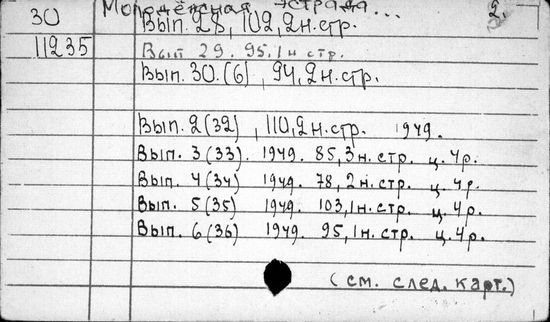 Молодёжная эстрада... 2.
30 Вып. 28, 102, 2н. стр.
11235 Вып 29. 95, 1н стр.
Вып. 30. (6), 94, 2н. стр.
Вып. 2 (32), 110, 2н. стр. 1949.
Вып. 3 (33). 1949. 85, 3н. стр. ц. 4р.
Вып. 4 (34) 1949. 78, 2н. стр. ц. 4р.
Вып. 5 (35) 1949. 103, 1н. стр. ц. 4р.
Вып. 6 (36) 1949. 95, 1н. стр. ц. 4р.
(см. след. карт.)